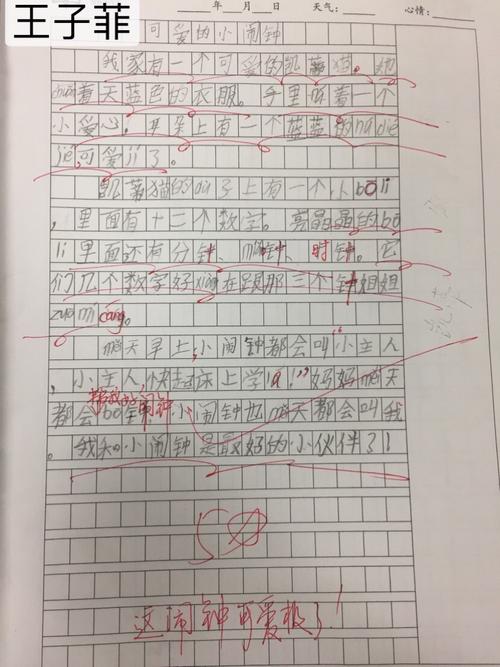 王子菲
____年____月____日 天气：______ 心情：______
可爱的小闹钟
我家有一个可爱的凯蒂猫。她
chuān着天蓝色的衣服。手里
着一个
小爱心，耳朵上有一个蓝蓝的hú dié
jié，可爱jí了。
凯蒂猫的dù子上有一个小bō li
，里面有十二个数字。亮晶晶的bō
li里面还有分钟、miǎo钟、时钟。它
们几个数字好xiàng在跟那三个钟姐姐
zuō mí cáng。
měi天早上，小闹钟都会叫“小主人
，小主人，快起床上学la！”妈妈měi天
都会 闹钟，小闹钟也měi天都会叫我
。我和小闹钟是最好的小伙伴了！
这闹钟可爱极了！